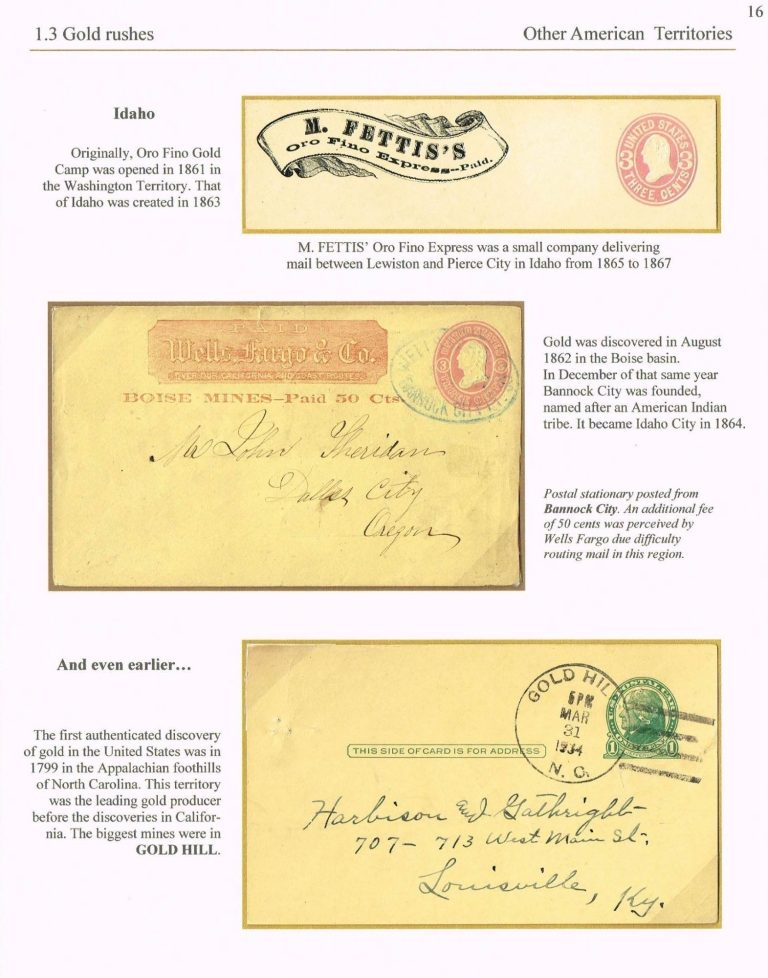 16
1.3 Gold rushes
Other American Territories
Idaho
Originally, Oro Fino Gold
Camp was opened in 1861 in
the Washington Territory. That
of Idaho was created in 1863
M. FETTIS'S
Oro Fino Express--Paid.
UNITED STATES
3 3
THREE CENTS
M. FETTIS' Oro Fino Express was a small company delivering
mail between Lewiston and Pierce City in Idaho from 1865 to 1867
PAID
Wells Fargo & Co.
OVER OUR CALIFORNIA AND COAST ROUTES
BOISE MINES--Paid 50 Cts
3
WELL
BANNOCK CITY
Mr John Sheridan
Dalles City
Oregon
Gold was discovered in August
1862 in the Boise basin.
In December of that same year
Bannock City was founded,
named after an American Indian
tribe. It became Idaho City in 1864.
Postal stationary posted from
Bannock City. An additional fee
of 50 cents was perceived by
Wells Fargo due difficulty
routing mail in this region.
And even earlier...
The first authenticated discovery
of gold in the United States was in
1799 in the Appalachian foothills
of North Carolina. This territory
was the leading gold producer
before the discoveries in Califor-
nia. The biggest mines were in
GOLD HILL.
GOLD HIL
6PM
MAR
31
1934
N. C.
U.S. POSTAL
1 1
THIS SIDE OF CARD IS FOR ADDRESS
Harbison & Gathright
707- 713 West Main St.
Louisville, Ky.